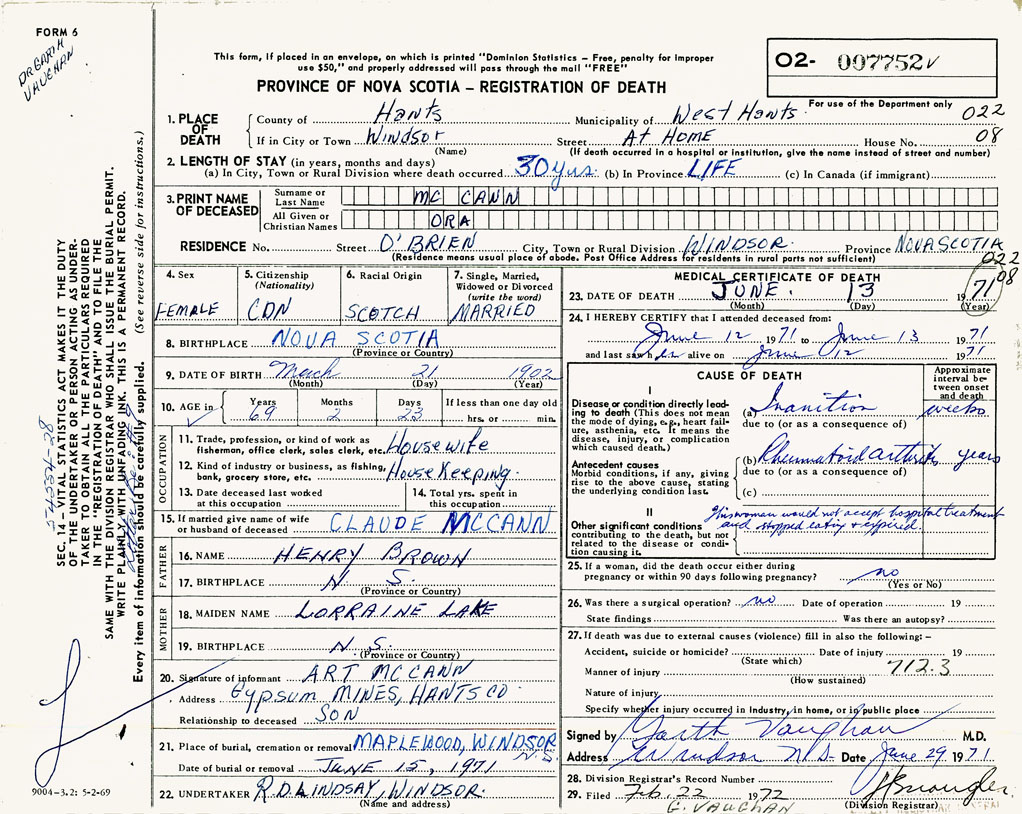 FORM 6
DR GARTH
VAUGHAN
This form, if placed in an envelope, on which is printed "Dominion Statistics – Free, penalty for improper
use $50," and properly addressed will pass through the mail "FREE"
PROVINCE OF NOVA SCOTIA – REGISTRATION OF DEATH
02- 007752
For use of the Department only
022
08
1. PLACE OF DEATH
County of Hants Municipality of West Hants
If in City or Town Windsor Street At Home House No.
(Name) (If death occurred in a hospital or institution, give the name instead of street and number)
2. LENGTH OF STAY (in years, months and days)
(a) In City, Town or Rural Division where death occurred 30 yrs. (b) In Province LIFE (c) In Canada (if immigrant)
3. PRINT NAME OF DECEASED
Surname or Last Name MC CANN
All Given or Christian Names ORA
RESIDENCE No. Street O'BRIEN City, Town or Rural Division WINDSOR. Province NOVA SCOTIA
(Residence means usual place of abode. Post Office Address for residents in rural parts not sufficient)
022
08
4. Sex
FEMALE
5. Citizenship
(Nationality)
CDN
6. Racial Origin
SCOTCH
7. Single, Married,
Widowed or Divorced
(write the word)
MARRIED
8. BIRTHPLACE NOVA SCOTIA
(Province or Country)
9. DATE OF BIRTH March 21 1902
(Month) (Day) (Year)
10. AGE in Years Months Days If less than one day old
69 2 23 hrs. or min.
OCCUPATION
11. Trade, profession, or kind of work as
fisherman, office clerk, sales clerk, etc. Housewife
12. Kind of industry or business, as fishing,
bank, grocery store, etc. House Keeping.
13. Date deceased last worked
at this occupation
14. Total yrs. spent in
this occupation
15. If married give name of wife
or husband of deceased CLAUDE MCCANN
FATHER
16. NAME HENRY BROWN
17. BIRTHPLACE N. S.
(Province or Country)
MOTHER
18. MAIDEN NAME LORRAINE LAKE
19. BIRTHPLACE N. S.
(Province or Country)
20. Signature of informant ART MCCANN
Address Gypsum MINES, HANTS CO
Relationship to deceased SON
21. Place of burial, cremation or removal MAPLEWOOD, WINDSOR N.S.
Date of burial or removal JUNE 15, 1971
22. UNDERTAKER R.D. LINDSAY, WINDSOR.
(Name and address)
MEDICAL CERTIFICATE OF DEATH
23. DATE OF DEATH JUNE. 13 1971
(Month) (Day) (Year)
24. I HEREBY CERTIFY that I attended deceased from:
June 12 1971 to June 13 1971
and last saw her alive on June 12 1971
CAUSE OF DEATH
Approximate
interval be-
tween onset
and death
I
Disease or condition directly lead-
ing to death (This does not mean
the mode of dying, e.g., heart fail-
ure, asthenia, etc. It means the
disease, injury, or complication
which caused death.)
(a) Inanition weeks
due to (or as a consequence of)
Antecedent causes
Morbid conditions, if any, giving
rise to the above cause, stating
the underlying condition last.
(b) Rheumatoid arthritis years
due to (or as a consequence of)
(c)
II
Other significant conditions
contributing to the death, but not
related to the disease or condi-
tion causing it.
This woman would not accept hospital treatment
and stopped eating & expired.
25. If a woman, did the death occur either during
pregnancy or within 90 days following pregnancy? no
(Yes or No)
26. Was there a surgical operation? no Date of operation 19
State findings Was there an autopsy?
27. If death was due to external causes (violence) fill in also the following: –
Accident, suicide or homicide? Date of injury 19
(State which)
712.3
Manner of injury
(How sustained)
Nature of injury
Specify whether injury occurred in industry, in home, or in public place
Signed by Garth Vaughan M.D.
Address Windsor N.S. Date June 29 1971
28. Division Registrar's Record Number
29. Filed Feb. 22 1972
G. VAUGHAN
(Division Registrar)
SEC. 14 – VITAL STATISTICS ACT MAKES IT THE DUTY
OF THE UNDERTAKER OR PERSON ACTING AS UNDER-
TAKER TO OBTAIN ALL THE PARTICULARS REQUIRED
IN THE "REGISTRATION OF DEATH" AND TO FILE THE
SAME WITH THE DIVISION REGISTRAR WHO SHALL ISSUE THE BURIAL PERMIT.
WRITE PLAINLY WITH UNFADING INK. THIS IS A PERMANENT RECORD.
Every item of information should be carefully supplied. (See reverse side for instructions.)
9004-3.2: 5-2-69